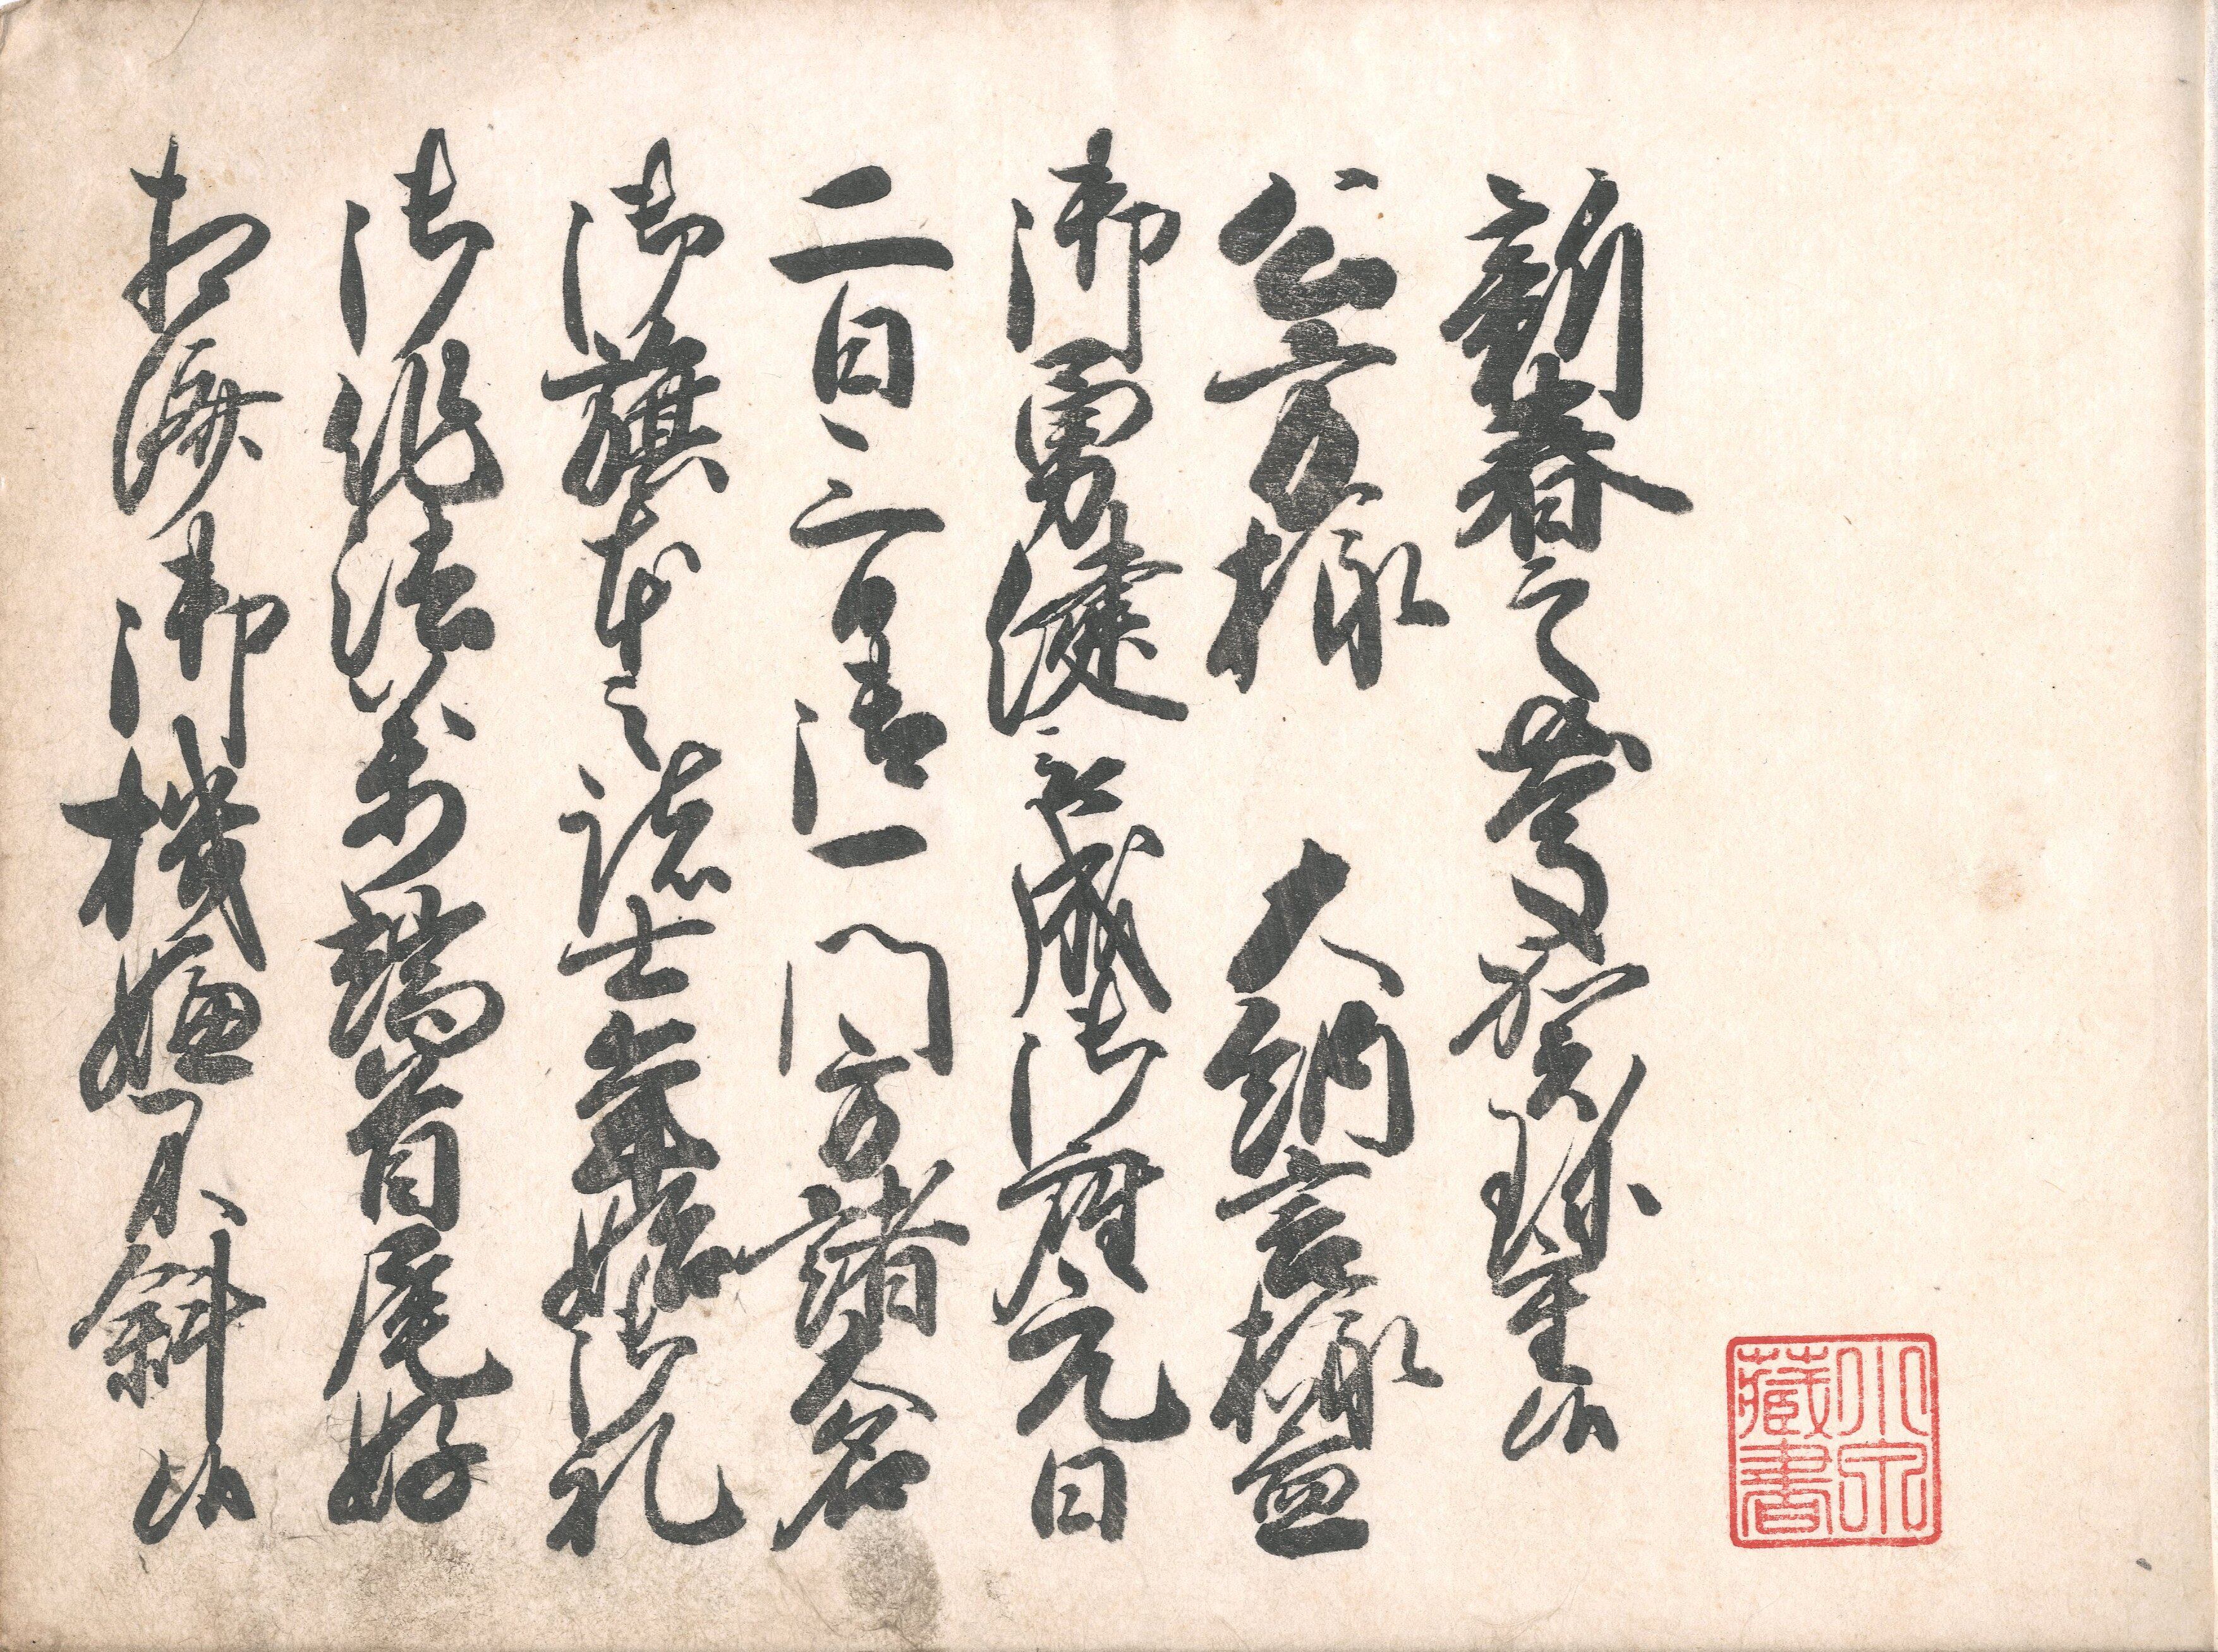 新春之夢想珍重候
公方様 大納言様益
御勇健ニ被成御座元日
二日三日御一門方諸大名
御旗本之諸士年始御礼
御作法万端首尾好
相済御機嫌不斜候
小穴
蔵書